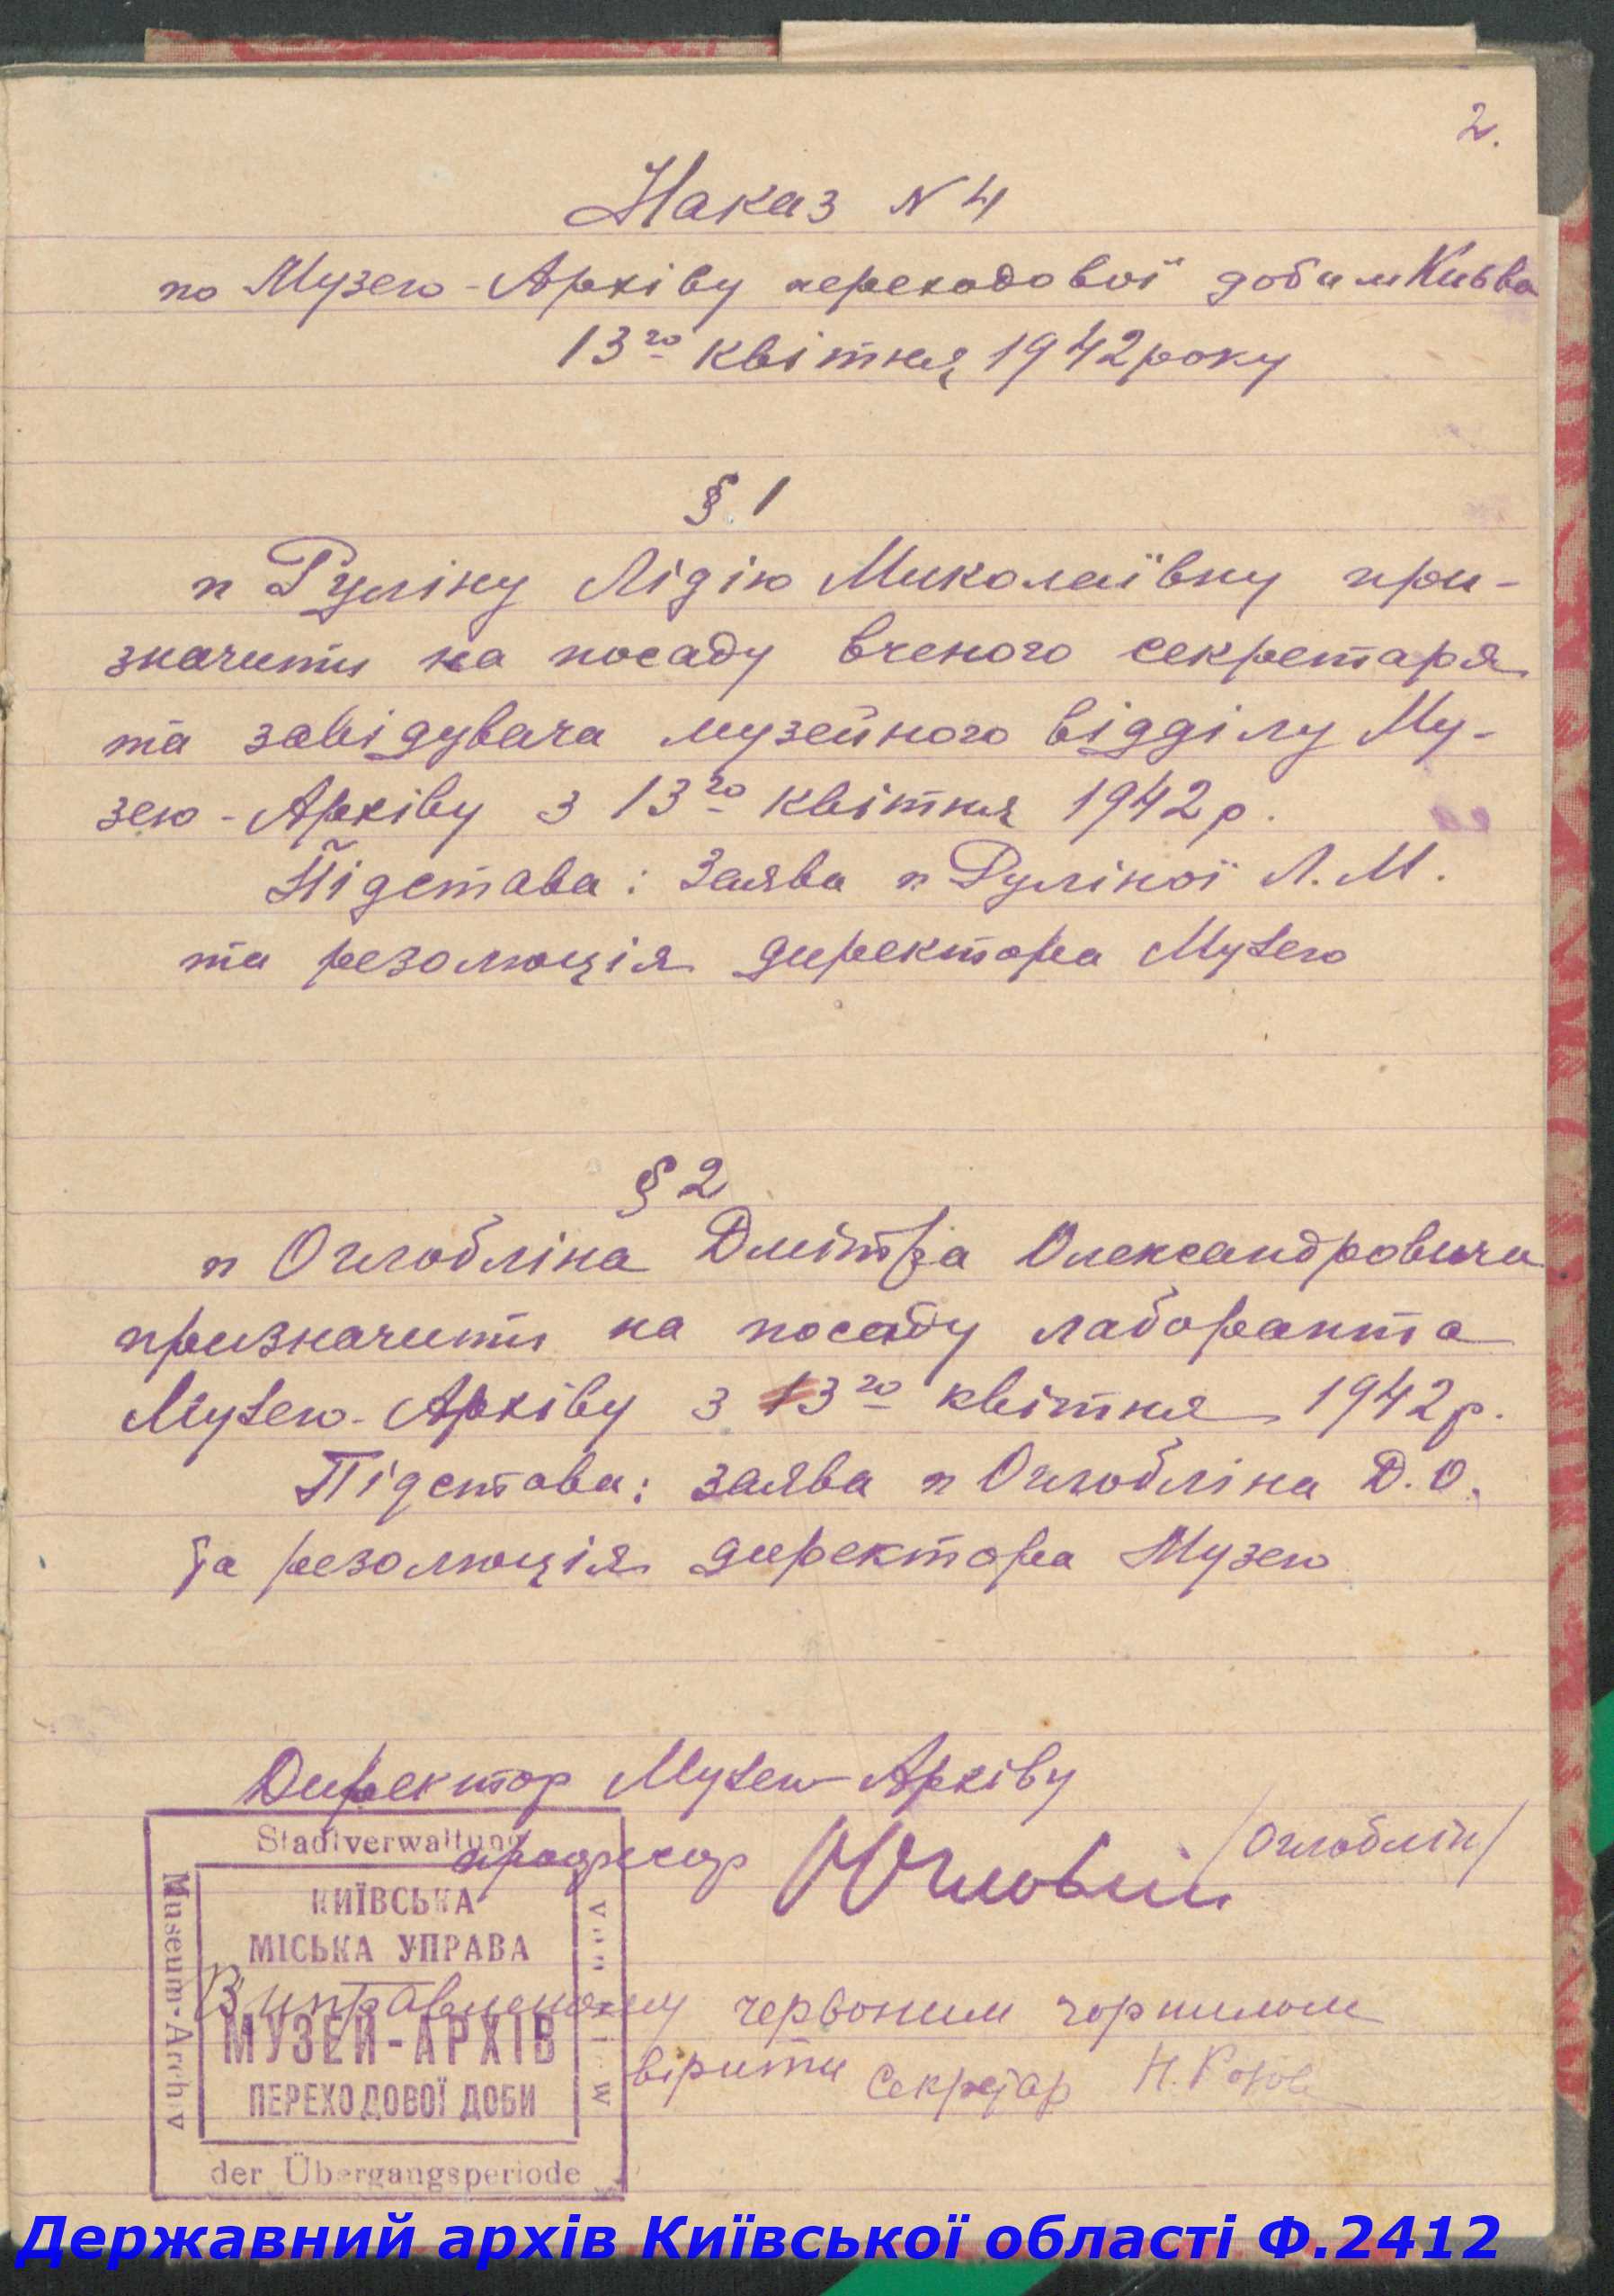 2.
Наказ N 4
по Музею-Архіву переходової доби м Київа
13го квітня 1942 року
§ 1
п Руліну Лідію Миколаївну при-
значити на посаду вченого секретаря
та завідувача музейного відділу Му-
зею-Архіву з 13го квітня 1942 р.
Підстава: Заява п Руліної Л. М.
та резолюція директора Музею
§ 2
п Оглобліна Дмітра Олександровича
призначити на посаду лаборанта
Музею-Архіву з 13го квітня 1942 р.
Підстава: заява п Оглобліна Д. О.
та резолюція директора Музею
Директор Музею-Архіву
професор /Оглоблін/
Виправленому червоним чорнилом
вірити Секретар
Stadtverwaltung
Museum-Archiv
КИЇВСЬКА
МІСЬКА УПРАВА
МУЗЕЙ-АРХІВ
ПЕРЕХОДОВОЇ ДОБИ
der Übergangsperiode
Державний архів Київської області Ф.2412